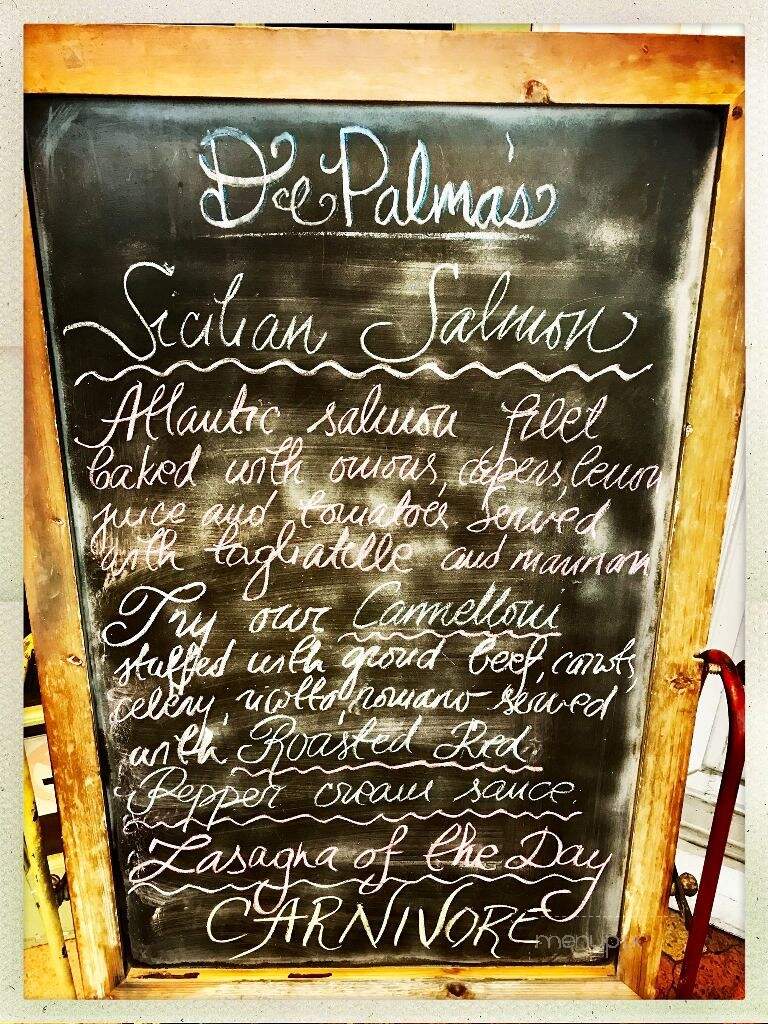 DePalma's
Sicilian Salmon
Atlantic salmon filet
baked with onions, capers, lemon
juice and tomatoes served
with tagliatelle and marinara
Try our Cannelloni
stuffed with ground beef, carrots,
celery, ricotta, romano served
with Roasted Red
Pepper cream sauce.
Lasagna of the Day
CARNIVORE